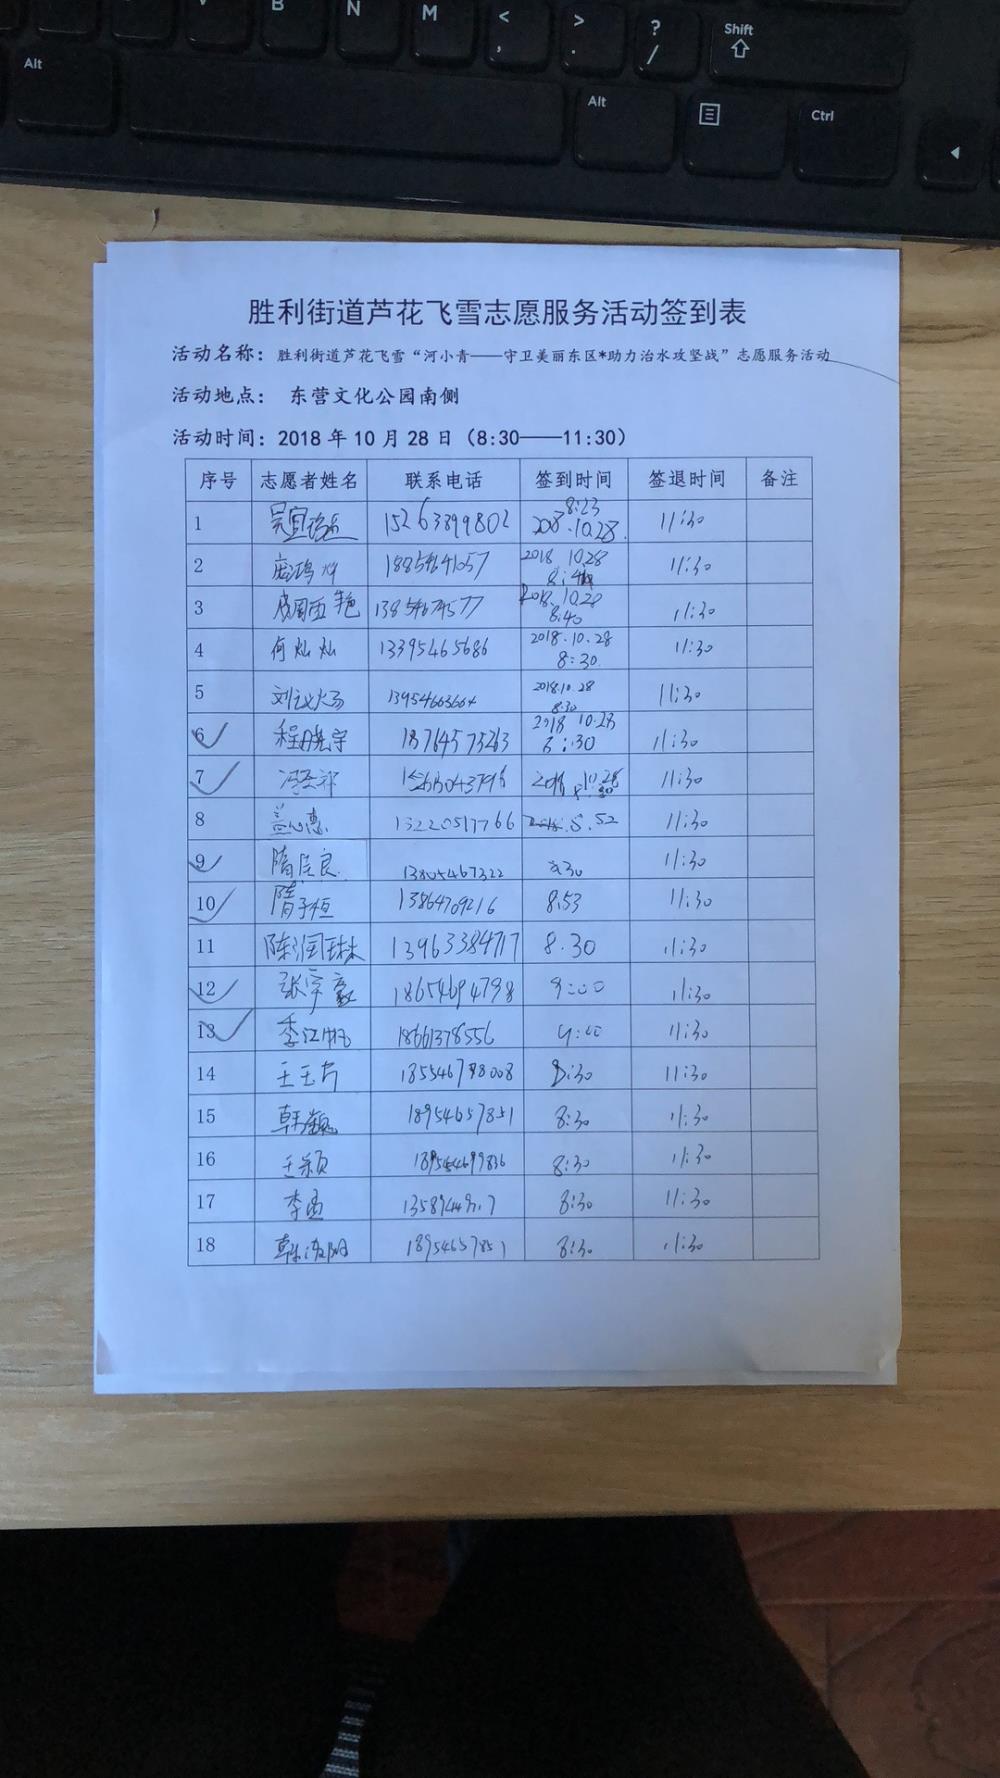 B N M < , > . ? / Shift
Alt Alt Ctrl
胜利街道芦花飞雪志愿服务活动签到表
活动名称：胜利街道芦花飞雪“河小青——守卫美丽东区*助力治水攻坚战”志愿服务活动
活动地点： 东营文化公园南侧
活动时间：2018 年 10 月 28 日（8:30——11:30）
序号 志愿者姓名 联系电话 签到时间 签退时间 备注
1 15263899802 8:23 2018.10.28 11:30
2 2018 10.28 11:30
3 2018.10.28 8:40 11:30
4 何灿灿 13395465686 2018.10.28 8:30 11:30
5 2018.10.28 8:30 11:30
6 程晓宇 18764575263 2018 10.28 8:30 11:30
7 2018 10.28 11:30
8 盖心惠 13220517766 8.52 11:30
9 隋佳良 13805467322 8:30 11:30
10 隋子恒 13864709216 8:53 11:30
11 陈润琳 13963384717 8.30 11:30
12 张宇豪 18654694798 9:00 11:30
13 季江帆 18661378556 9:00 11:30
14 8:30 11:30
15 韩巍 18954657851 8:30 11:30
16 王颖 8:30 11:30
17 8:30 11:30
18 18954657851 8:30 11:30